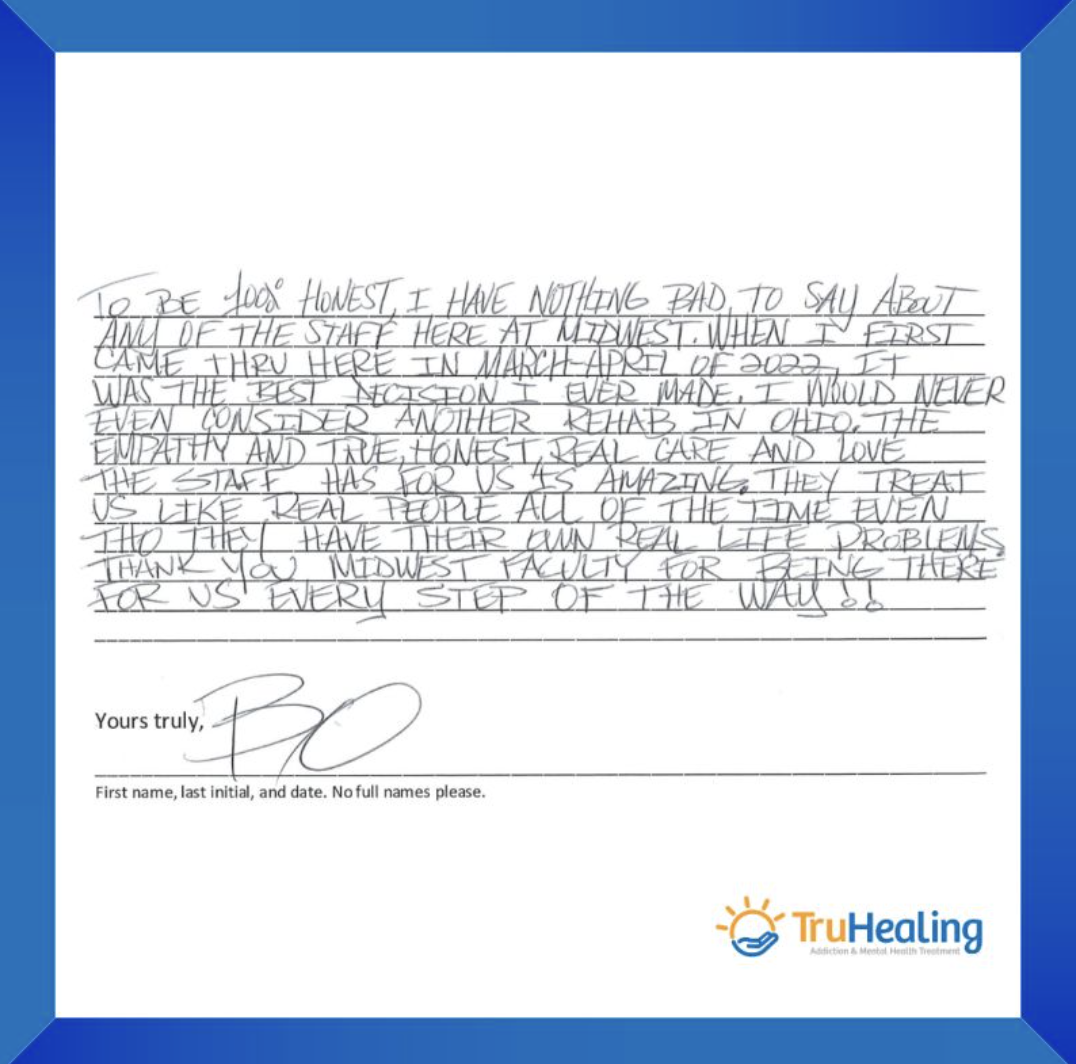 TO BE 100% HONEST, I HAVE NOTHING BAD TO SAY ABOUT
ANY OF THE STAFF HERE AT MIDWEST. WHEN I FIRST
CAME THRU HERE IN MARCH-APRIL OF 2022, IT
WAS THE BEST DECISION I EVER MADE. I WOULD NEVER
EVEN CONSIDER ANOTHER REHAB IN OHIO. THE
EMPATHY AND TRUE, HONEST, REAL CARE AND LOVE
THE STAFF HAS FOR US IS AMAZING. THEY TREAT
US LIKE REAL PEOPLE ALL OF THE TIME EVEN
THO THEY HAVE THEIR OWN REAL LIFE PROBLEMS.
THANK YOU MIDWEST FACULTY FOR BEING THERE
FOR US EVERY STEP OF THE WAY!!
Yours truly, BO
First name, last initial, and date. No full names please.
TruHealing
Addiction & Mental Health Treatment